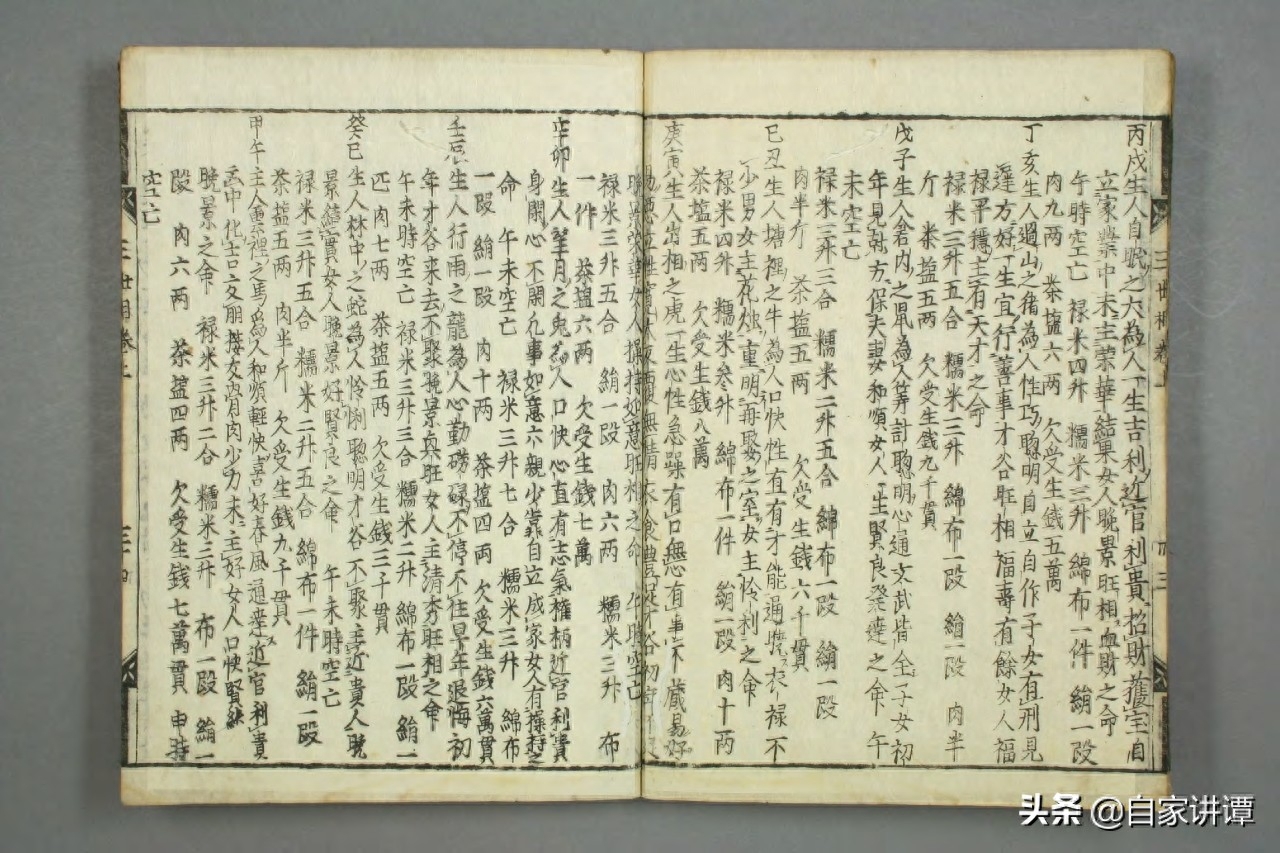 丙戌生人自眠之犬為人一生吉利近官利貴招財獲宝自
立家業中末主荣華結果女人晩景旺相血財之命
午時空亡 禄米四升 糯米三升 綿布一件 絹一段
肉九两 茶塩六两 欠受生錢五萬
丁亥生人過山之猪為人性巧聰明自立自作子女有刑見
遅方好一生宜行善事才谷旺相福壽有餘女人福
禄平穩主有天才之命
禄米三升五合 糯米三升 綿布一段 絹一段 肉半
斤 茶塩五两 欠受生錢九千貫
戊子生人倉内之鼠為人筭計聰明心通文武皆全子女初
年見刑方保夫妻和順女人一生賢良發達之命 午
未空亡
禄米三升三合 糯米二升五合 綿布一段 絹一段
肉半斤 茶塩五两 欠受生錢六千貫
己丑生人塘裡之牛為人口快性直有才能通曉衣禄不
少男女主花燭重明再娶之室女主怜利之命
禄米四升 糯米叁升 綿布一件 絹一段 肉十两
茶塩五两 欠受生錢八萬
庚寅生人出相之虎一生心性急躁有口無心有事不藏易好
操持如意旺相之命
禄米三升五合 絹一段 肉六两 糯米三升 布
一件 茶塩六两 欠受生錢七萬
辛卯生人望月之兔為人口快心直有志氣權柄近官利貴
身閑心不閑凡事如意六親少靠自立成家女人有操持之
命 午未空亡 禄米三升七合 糯米三升 綿布
一段 絹一段 肉十两 茶塩四両 欠受生錢六萬貫
壬辰生人行雨之龍為人心勤磅碌不停不住早年退悔初
年才谷来去不聚晚景興旺女人主清秀旺相之命
午未時空亡 禄米三升三合 糯米二升 綿布一段 絹一
匹 肉七两 茶塩五两 欠受生錢三千貫
癸巳生人林中之蛇為人怜悧聰明才谷不聚主近貴人晩
景結實女人晚景好賢良之命 午未時空亡
禄米三升五合 糯米二升五合 綿布一件 絹一段
茶塩五两 肉半斤 欠受生錢九千貫
甲午生人雲裡之馬為人和順輕快喜好春風通達近官利貴
化吉交朋接友骨肉少力末主好女人口快賢
晩景之命 禄米三升二合 糯米三升 布一段 絹一
段 肉六两 茶塩四两 欠受生錢七萬貫 申時
空亡
三世相卷上
三十四
头条 @自家讲谭